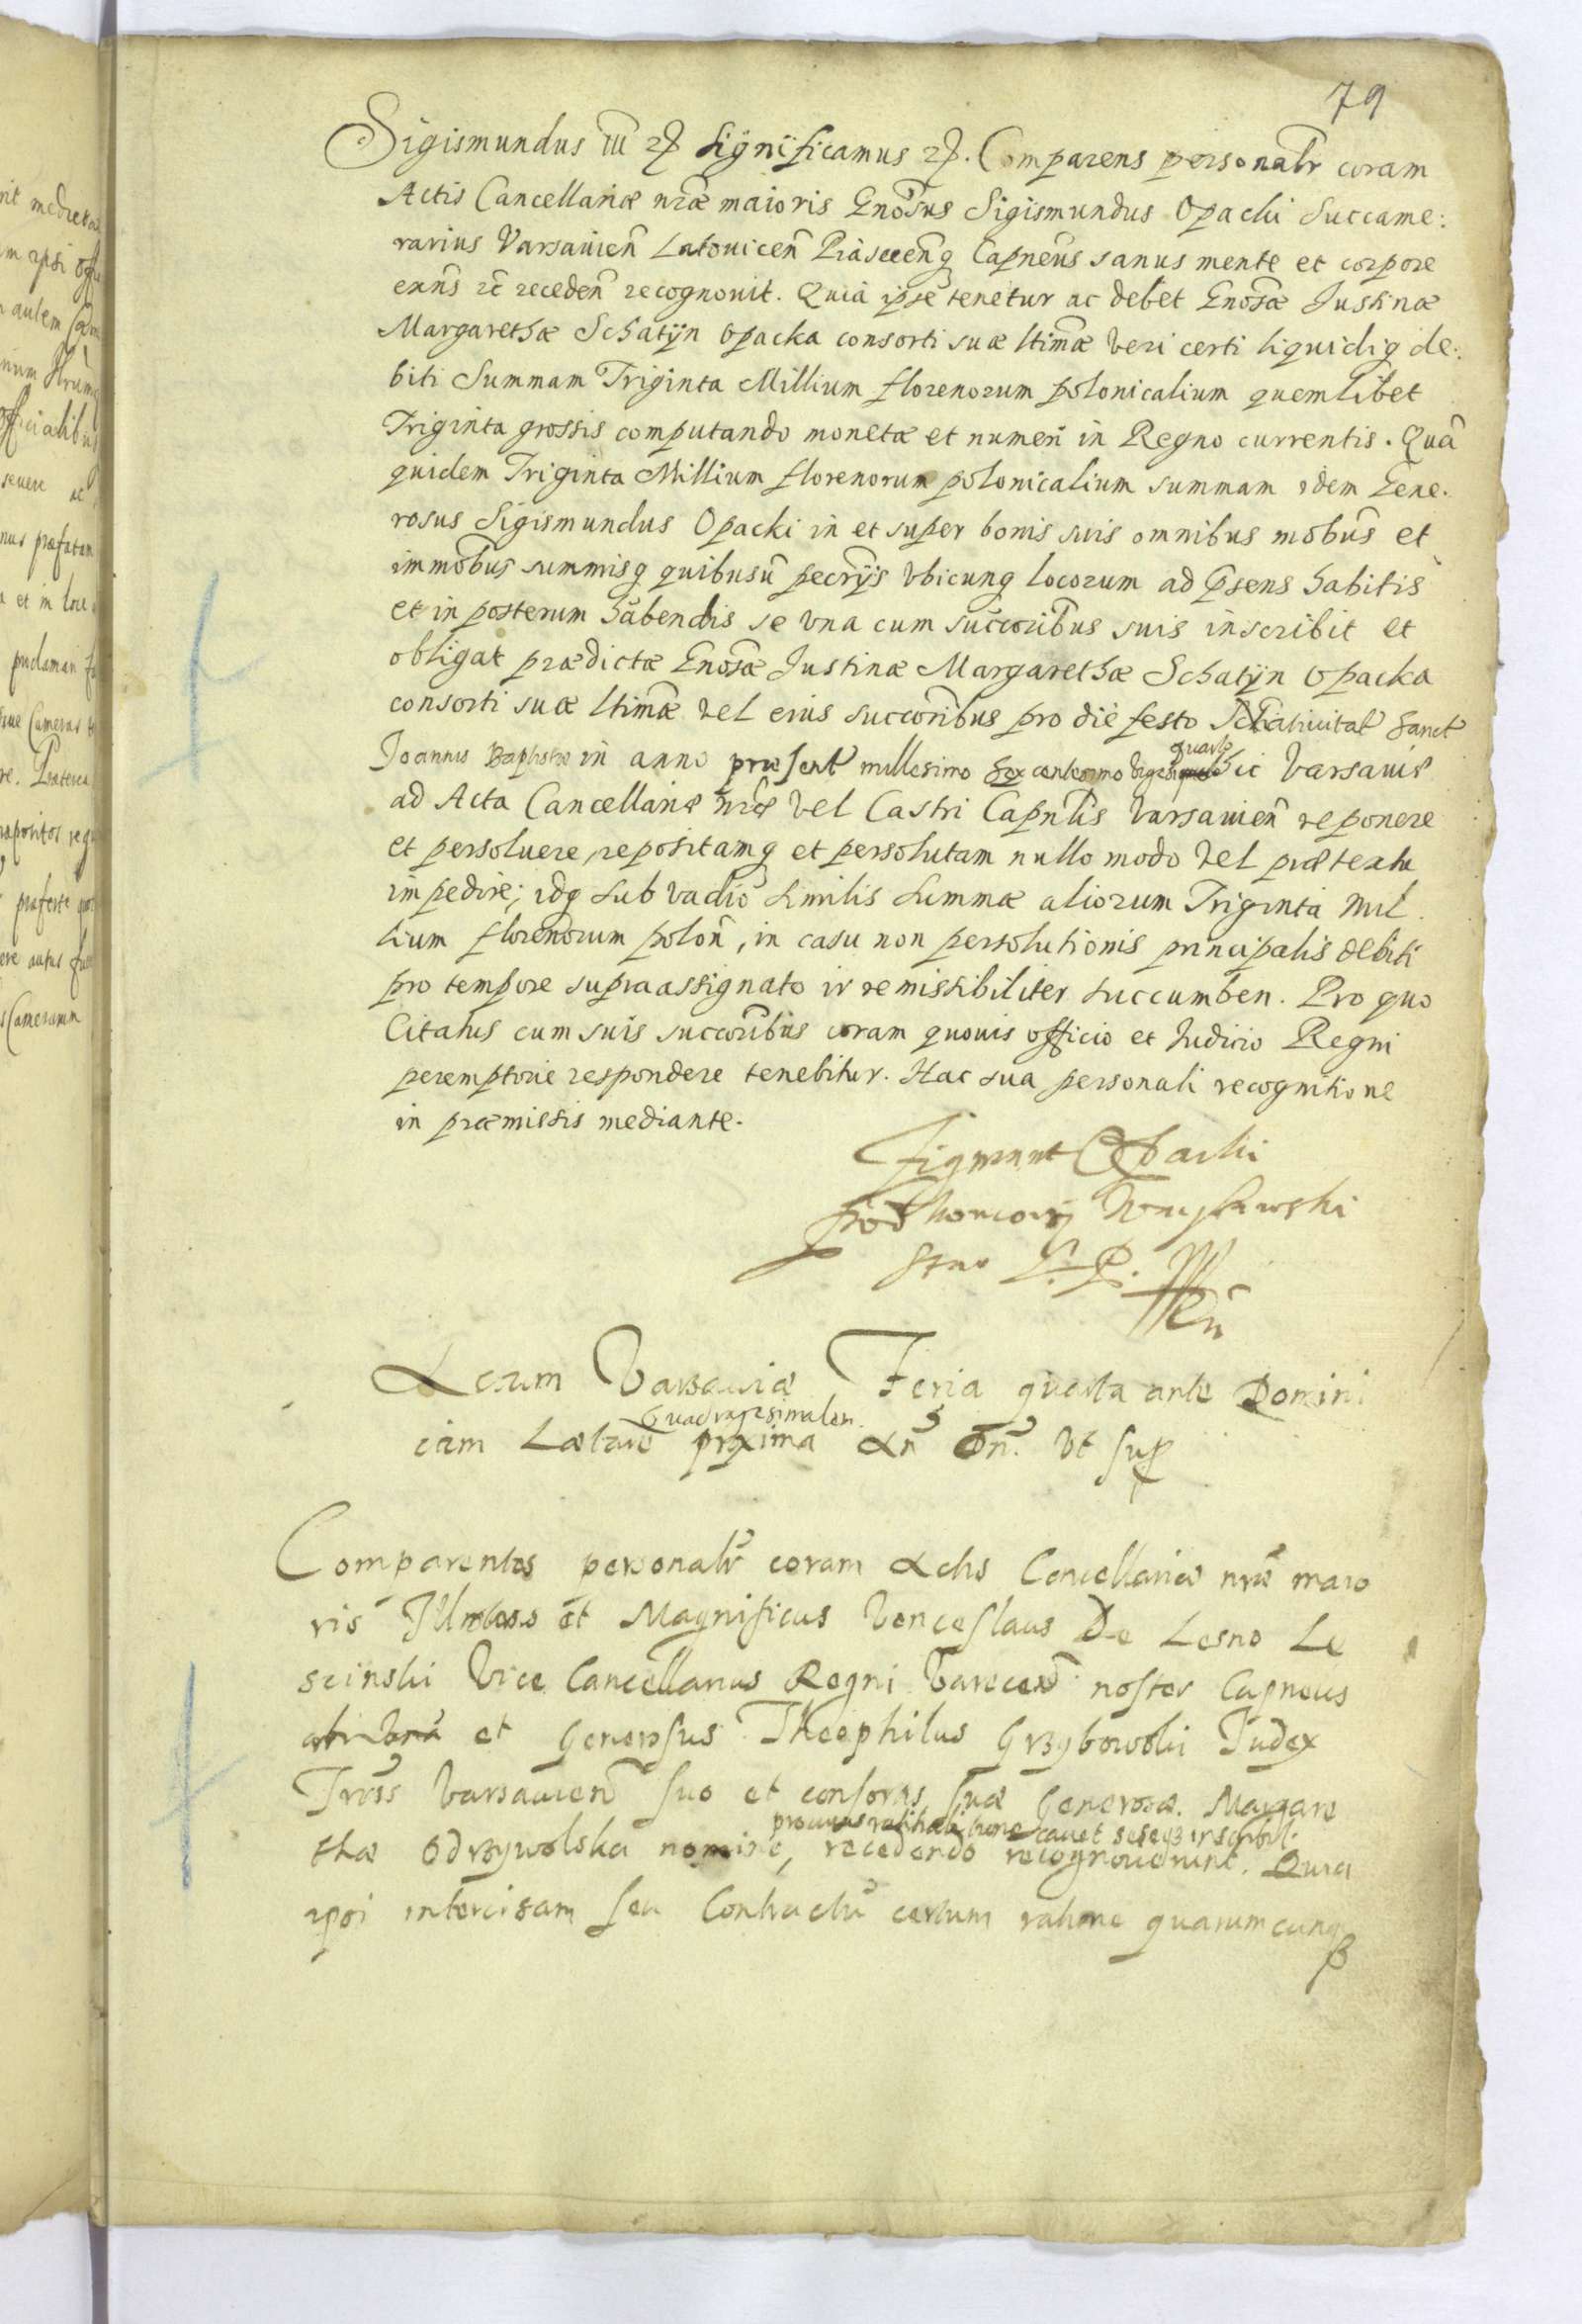 79
Sigismundus III etc. Significamus etc. Comparens personalr coram
Actis Cancellariæ nræ maioris Gnosus Sigismundus Opacki Succame:
rarius Varsavien Latovicen Piaseceng Capneus sanus mente et corpore
exns rc receden recognovit. Quia ipse tenetur ac debet Gnosæ Justinæ
Margarethæ Schatÿn Opacka consorti suæ ltimæ veri certi liquidiq de:
biti Summam Triginta Millium florenorum polonicalium quemlibet
Triginta grossis computando monetæ et numeri in Regno currentis. Quã
quidem Triginta Millium florenorum polonicalium summam idem Gene:
rosus Sigismundus Opacki in et super bonis suis omnibus mobus et
immobus summisq quibusũ pecrijs ubicunq locorum ad psens habitis
et in posterum habendis se una cum succoribus suis inscribit et
obligat prædictæ Gnosæ Justinæ Margarethæ Schatÿn Opacka
consorti suæ ltimæ vel eius succoribus pro die festo Nativitat Sanct
quarto
Joannis Baptistæ in anno præsent millesimo sexcentesimo vigesimo hic Varsaviæ
ad Acta Cancellariæ nræ vel Castri Capnlis Varsavien reponere
et persoluere, repositamq et persolutam nullo modo vel prætextu
impedire; idq sub vadio similis summæ aliorum Triginta Mil
lium florenorum polon, in casu non persolutionis principalis debiti
pro tempore supra assignato irremissibiliter succumben. Pro quo
Citatus cum suis succoribus coram quovis officio et Judicio Regni
peremptorie respondere tenebitur. Hac sua personali recognitione
in præmissis mediante.
Zigmunt Opacki
Actum Varsaviæ Feria quarta ante Domini
Quadragesimalem
cam Lætare proxima An Dn. ut sup
Comparentes personalr coram Actis Cancellariæ nræ maio
ris Illustris et Magnificus Venceslaus De Lesno Le
scinski Vice Cancellarius Regni Varecen noster Capneus
et Generosus Theophilus Grzybowski Judex
Trris Varsavien suo et consortis suæ Generosæ Margare
pro cuius ratihabitione cavet seseq inscribit.
thæ Odrzywolska nomine, recedendo recognoverunt. Quia
ipsi intercisam seu Contractũ certum ratione quarumcunq